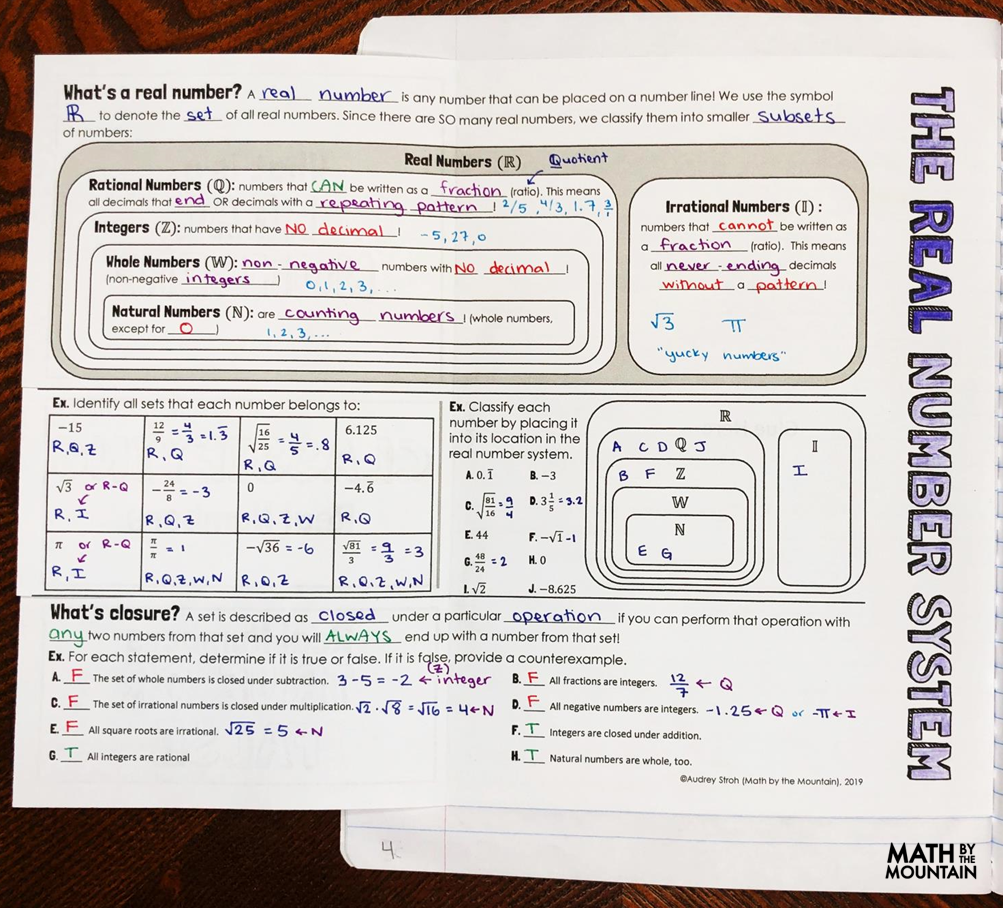 What's a real number? A real number is any number that can be placed on a number line! We use the symbol
ℝ to denote the set of all real numbers. Since there are SO many real numbers, we classify them into smaller subsets
of numbers:
Real Numbers (ℝ) Quotient
Rational Numbers (ℚ): numbers that CAN be written as a fraction (ratio). This means
all decimals that end OR decimals with a repeating pattern! 2/5, 4/3, 1.7, 3/1
Integers (ℤ): numbers that have NO decimal! -5, 27, 0
Whole Numbers (𝕎): non-negative numbers with NO decimal!
(non-negative integers) 0, 1, 2, 3, ...
Natural Numbers (ℕ): are counting numbers! (whole numbers,
except for 0!) 1, 2, 3, ...
Irrational Numbers (𝕀):
numbers that cannot be written as
a fraction (ratio). This means
all never-ending decimals
without a pattern!
√3 π
"yucky numbers"
THE REAL NUMBER SYSTEM
Ex. Identify all sets that each number belongs to:
−15
R, Q, Z
12/9 = 4/3 = 1.3̅
R, Q
√(16/25) = 4/5 = .8
R, Q
6.125
R, Q
√3 or R-Q
R, I
−24/8 = -3
R, Q, Z
0
R, Q, Z, W
−4.6̅
R, Q
π or R-Q
R, I
π/π = 1
R, Q, Z, W, N
−√36 = -6
R, Q, Z
√81/3 = 9/3 = 3
R, Q, Z, W, N
Ex. Classify each
number by placing it
into its location in the
real number system.
A. 0.1̅ B. −3
C. √(81/16) = 9/4 D. 3 1/5 = 3.2
E. 44 F. −√1 -1
G. 48/24 = 2 H. 0
I. √2 J. −8.625
ℝ
A C D ℚ J
B F ℤ
𝕎
ℕ
E G
𝕀
I
What's closure? A set is described as closed under a particular operation if you can perform that operation with
any two numbers from that set and you will ALWAYS end up with a number from that set!
Ex. For each statement, determine if it is true or false. If it is false, provide a counterexample.
A. F The set of whole numbers is closed under subtraction. 3-5 = -2 ← integer (Z)
B. F All fractions are integers. 12/7 ← Q
C. F The set of irrational numbers is closed under multiplication. √2 · √8 = √16 = 4 ← N
D. F All negative numbers are integers. -1.25 ← Q or -π ← I
E. F All square roots are irrational. √25 = 5 ← N
F. T Integers are closed under addition.
G. T All integers are rational
H. T Natural numbers are whole, too.
©Audrey Stroh (Math by the Mountain), 2019
4
MATH BY THE MOUNTAIN